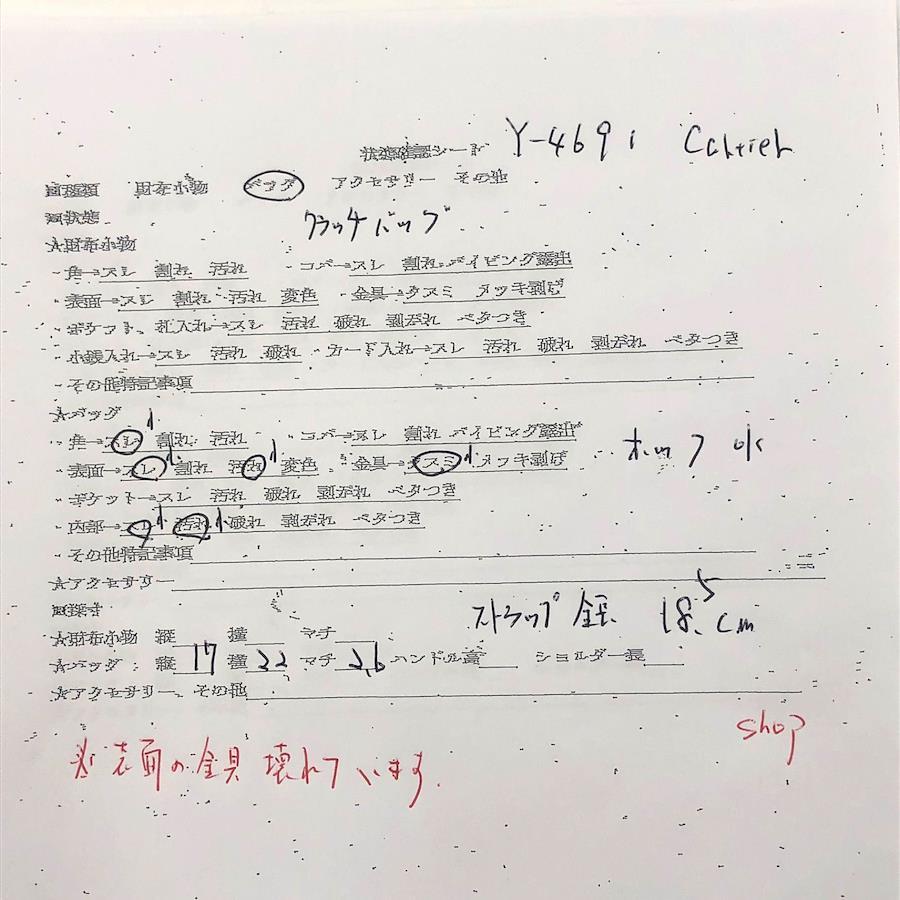 状態確認シート Y-4691 Cartier
■種類 財布小物 バッグ アクセサリー その他
■状態 クラッチバッグ
★財布小物
・角→スレ 割れ 汚れ ・コバ→スレ 割れ パイピング露出
・表面→スレ 割れ 汚れ 変色 ・金具→クスミ メッキ剥げ
・ポケット、札入れ→スレ 汚れ 破れ 剥がれ ベタつき
・小銭入れ→スレ 汚れ 破れ ・カード入れ→スレ 汚れ 破れ 剥がれ ベタつき
・その他特記事項
★バッグ
・角→スレ 小 割れ 汚れ ・コバ→スレ 割れ パイピング露出
・表面→スレ 小 割れ 汚れ 小 変色 ・金具→クスミ 小 メッキ剥げ ホック ok
・ポケット→スレ 汚れ 破れ 剥がれ ベタつき
・内部→スレ 小 汚れ 小 破れ 剥がれ ベタつき
・その他特記事項
★アクセサリー
■採寸 ストラップ全長 18.5cm
★財布小物 縦 横 マチ
★バッグ 縦 17 横 22 マチ 2.6 ハンドル高 ショルダー長
★アクセサリー、その他
shop
※表面の金具壊れています。